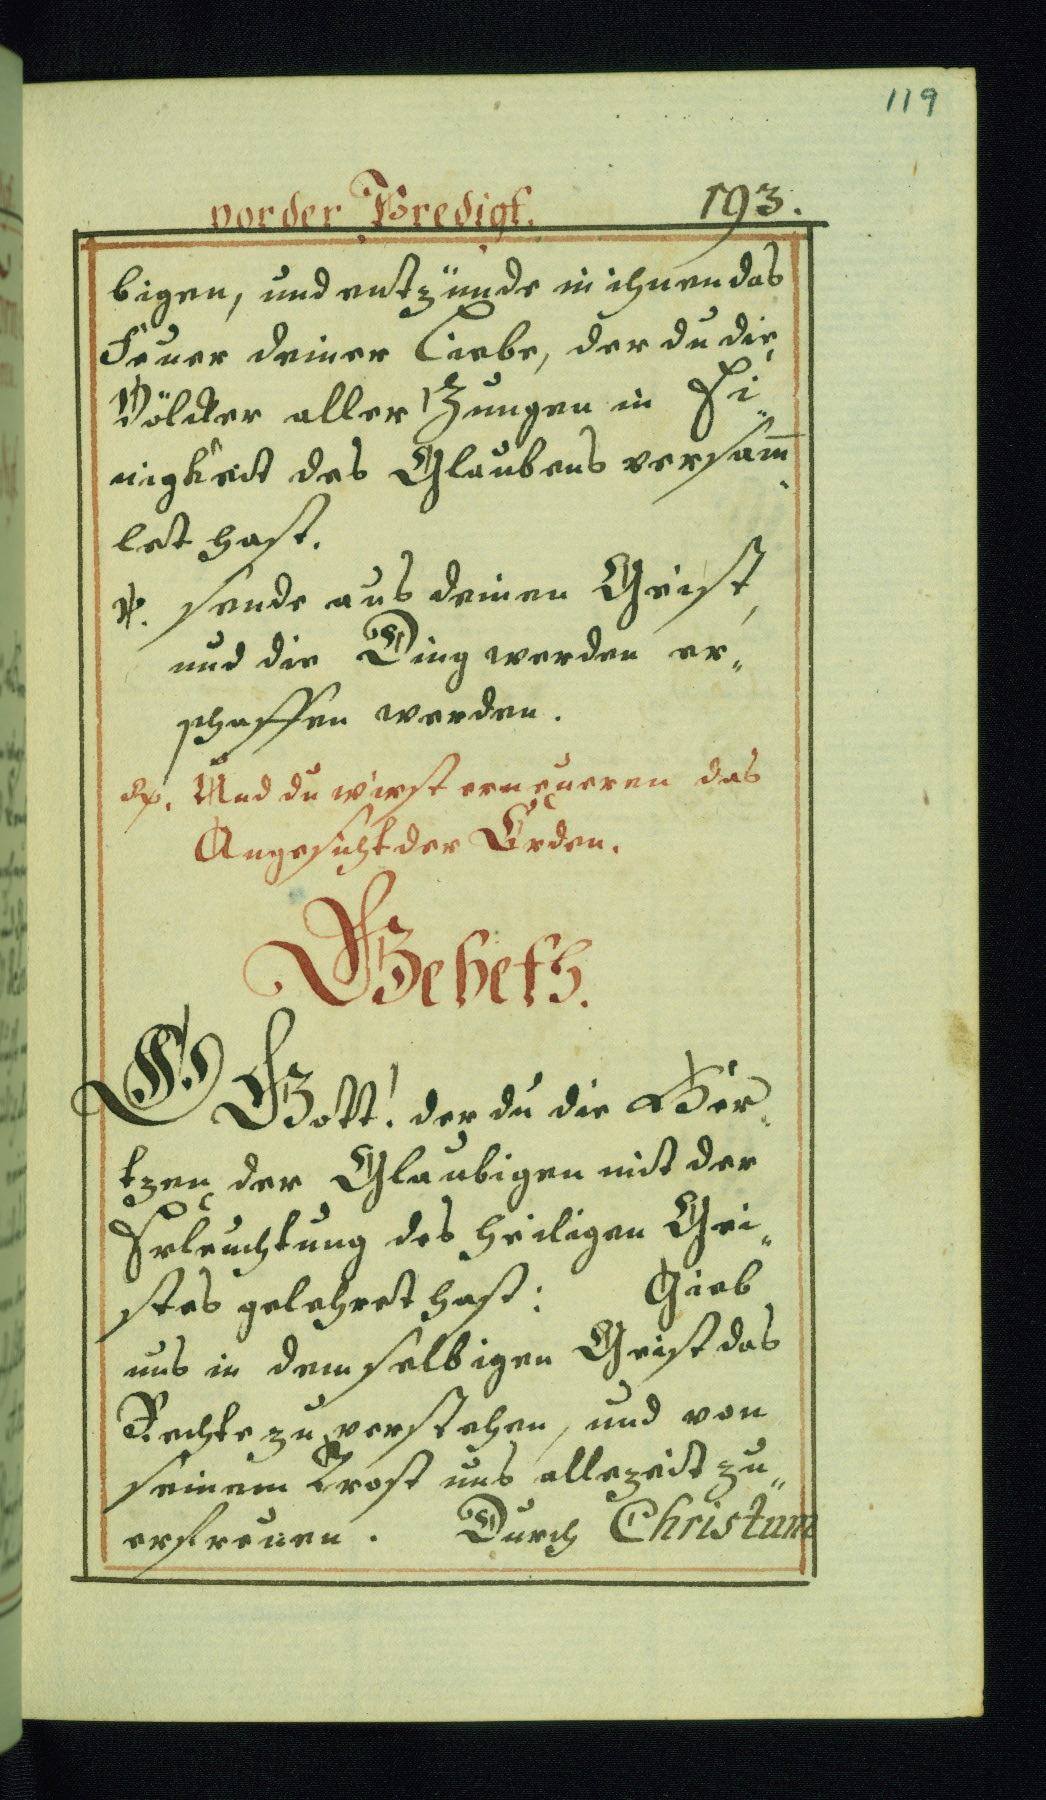 119
vor der Predigt. 193.
bigen, und entzünde in ihnen das
Feuer deiner Liebe, der du die
Völcker aller Zungen in Ei„
nigkeit des Glaubens versam̄„
let hast.
℣. sende aus deinen Geist,
und die Ding werden er„
schaffen werden.
℟. Und du wirst erneueren das
Angesicht der Erden.
Gebeth.
O Gott! der du die Her„
tzen der Glaubigen mit der
Erleuchtung des heiligen Gei„
stes gelehret hast: Gieb
uns in dem selbigen Geist das
Rechte zu verstehen, und von
seinem Trost uns allezeit zu„
erfreuen. Durch Christum